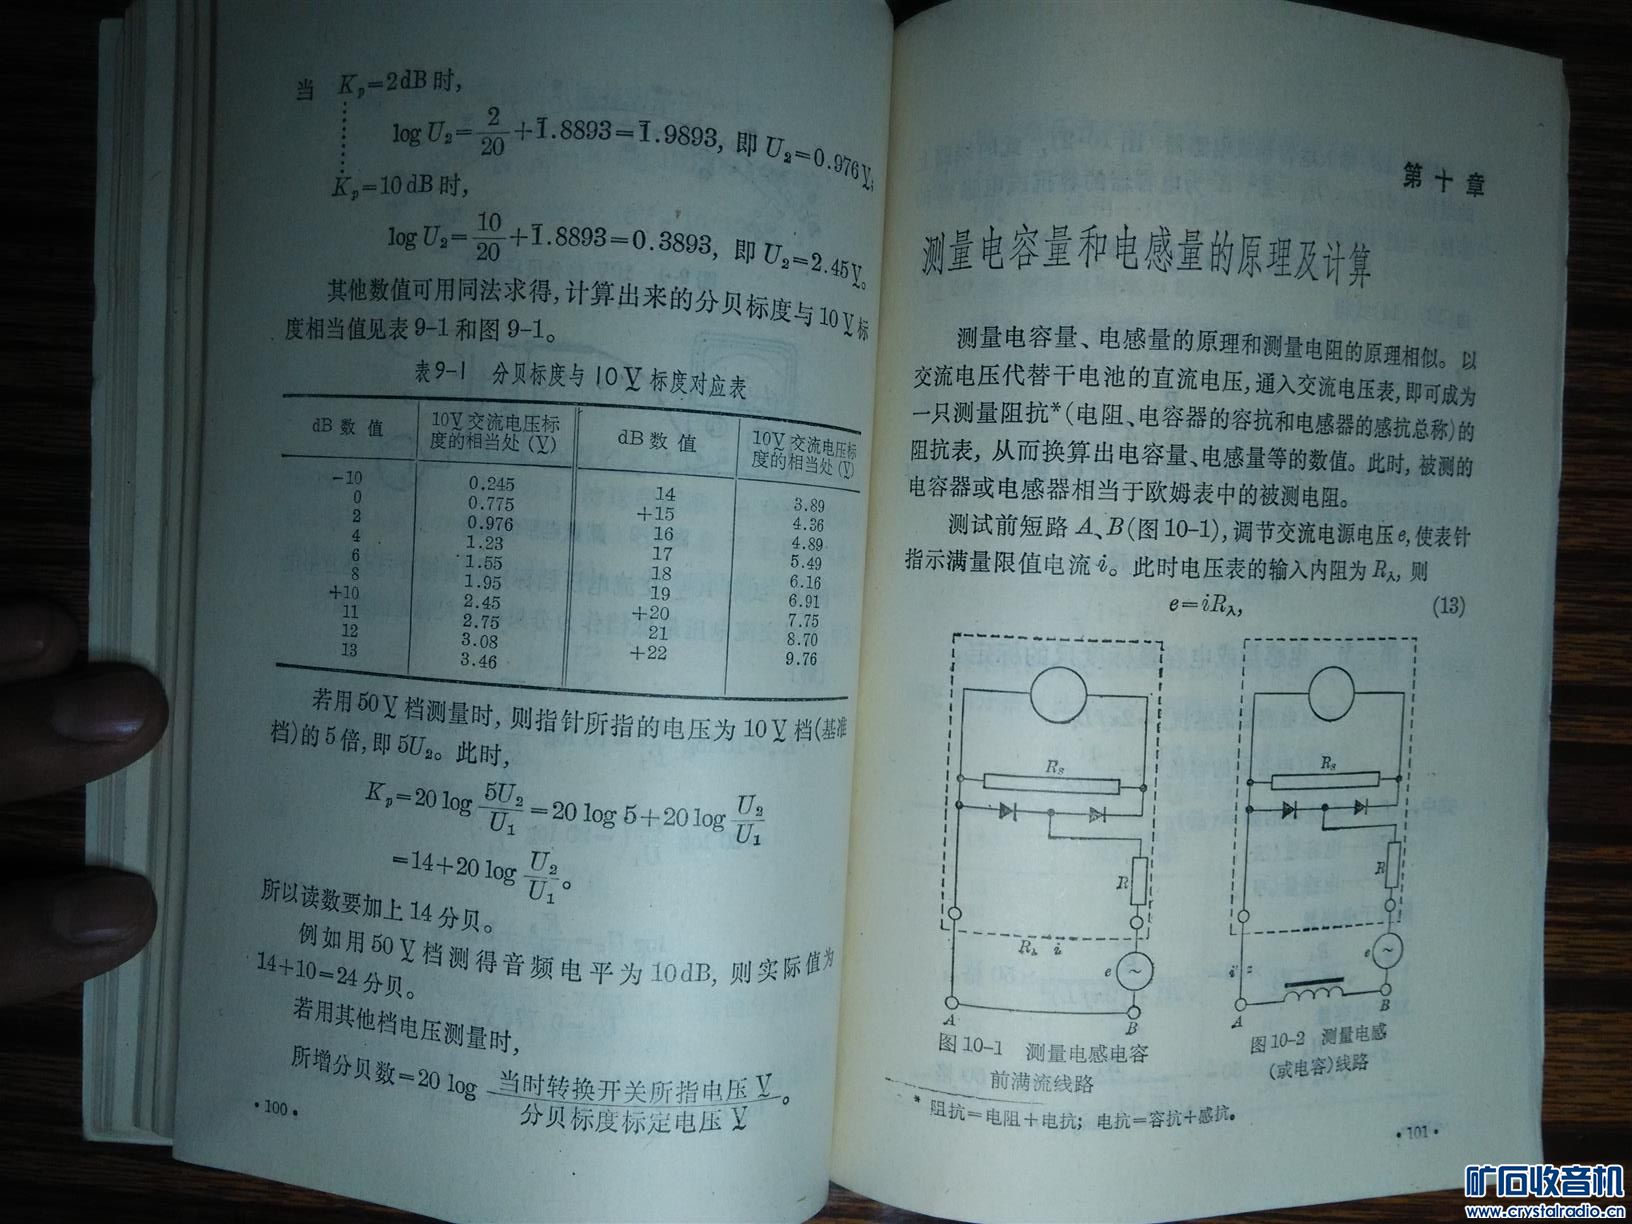 当 Kₚ=2dB时,
log U₂=2/20+1̄.8893=1̄.9893, 即 U₂=0.976V̰;
Kₚ=10dB时,
log U₂=10/20+1̄.8893=0.3893, 即 U₂=2.45V̰。
其他数值可用同法求得,计算出来的分贝标度与10V̰标
度相当值见表9-1和图9-1。
表9-1 分贝标度与10V̰标度对应表
dB数值 10V̰交流电压标度的相当处(V̰) dB数值 10V̰交流电压标度的相当处(V̰)
-10 0.245 14 3.89
0 0.775 +15 4.36
2 0.976 16 4.89
4 1.23 17 5.49
6 1.55 18 6.16
8 1.95 19 6.91
+10 2.45 +20 7.75
11 2.75 21 8.70
12 3.08 +22 9.76
13 3.46
若用50V̰档测量时,则指针所指的电压为10V̰档(基准
档)的5倍,即5U₂。此时,
Kₚ=20 log 5U₂/U₁=20 log 5+20 log U₂/U₁
=14+20 log U₂/U₁。
所以读数要加上14分贝。
例如用50V̰档测得音频电平为10dB,则实际值为
14+10=24分贝。
若用其他档电压测量时,
所增分贝数=20 log 当时转换开关所指电压V̰/分贝标度标定电压V̰。
·100·
第十章
测量电容量和电感量的原理及计算
测量电容量、电感量的原理和测量电阻的原理相似。以
交流电压代替干电池的直流电压,通入交流电压表,即可成为
一只测量阻抗*(电阻、电容器的容抗和电感器的感抗总称)的
阻抗表,从而换算出电容量、电感量等的数值。此时,被测的
电容器或电感器相当于欧姆表中的被测电阻。
测试前短路A、B(图10-1),调节交流电源电压e,使表针
指示满量限值电流i。此时电压表的输入内阻为R入,则
e=iR入, (13)
Rs
R
R入 i
e
A B
图10-1 测量电感电容
前满流线路
Rs
R
e
A B
图10-2 测量电感
(或电容)线路
* 阻抗=电阻+电抗;电抗=容抗+感抗。
·101·
矿石收音机
www.crystalradio.cn